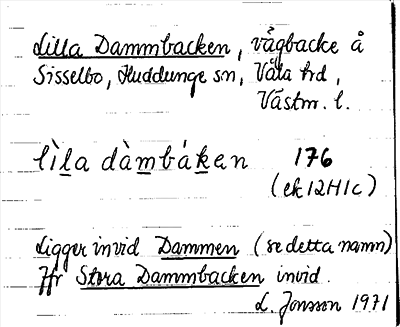 Lilla Dammbacken, vägbacke å
Sisselbo, Huddunge sn, Våla hd,
Västm. l.
lìla dàmbáken 176
(ek 12H1c)
Ligger invid Dammen (se detta namn)
Jfr Stora Dammbacken invid.
L. Jonsson 1971